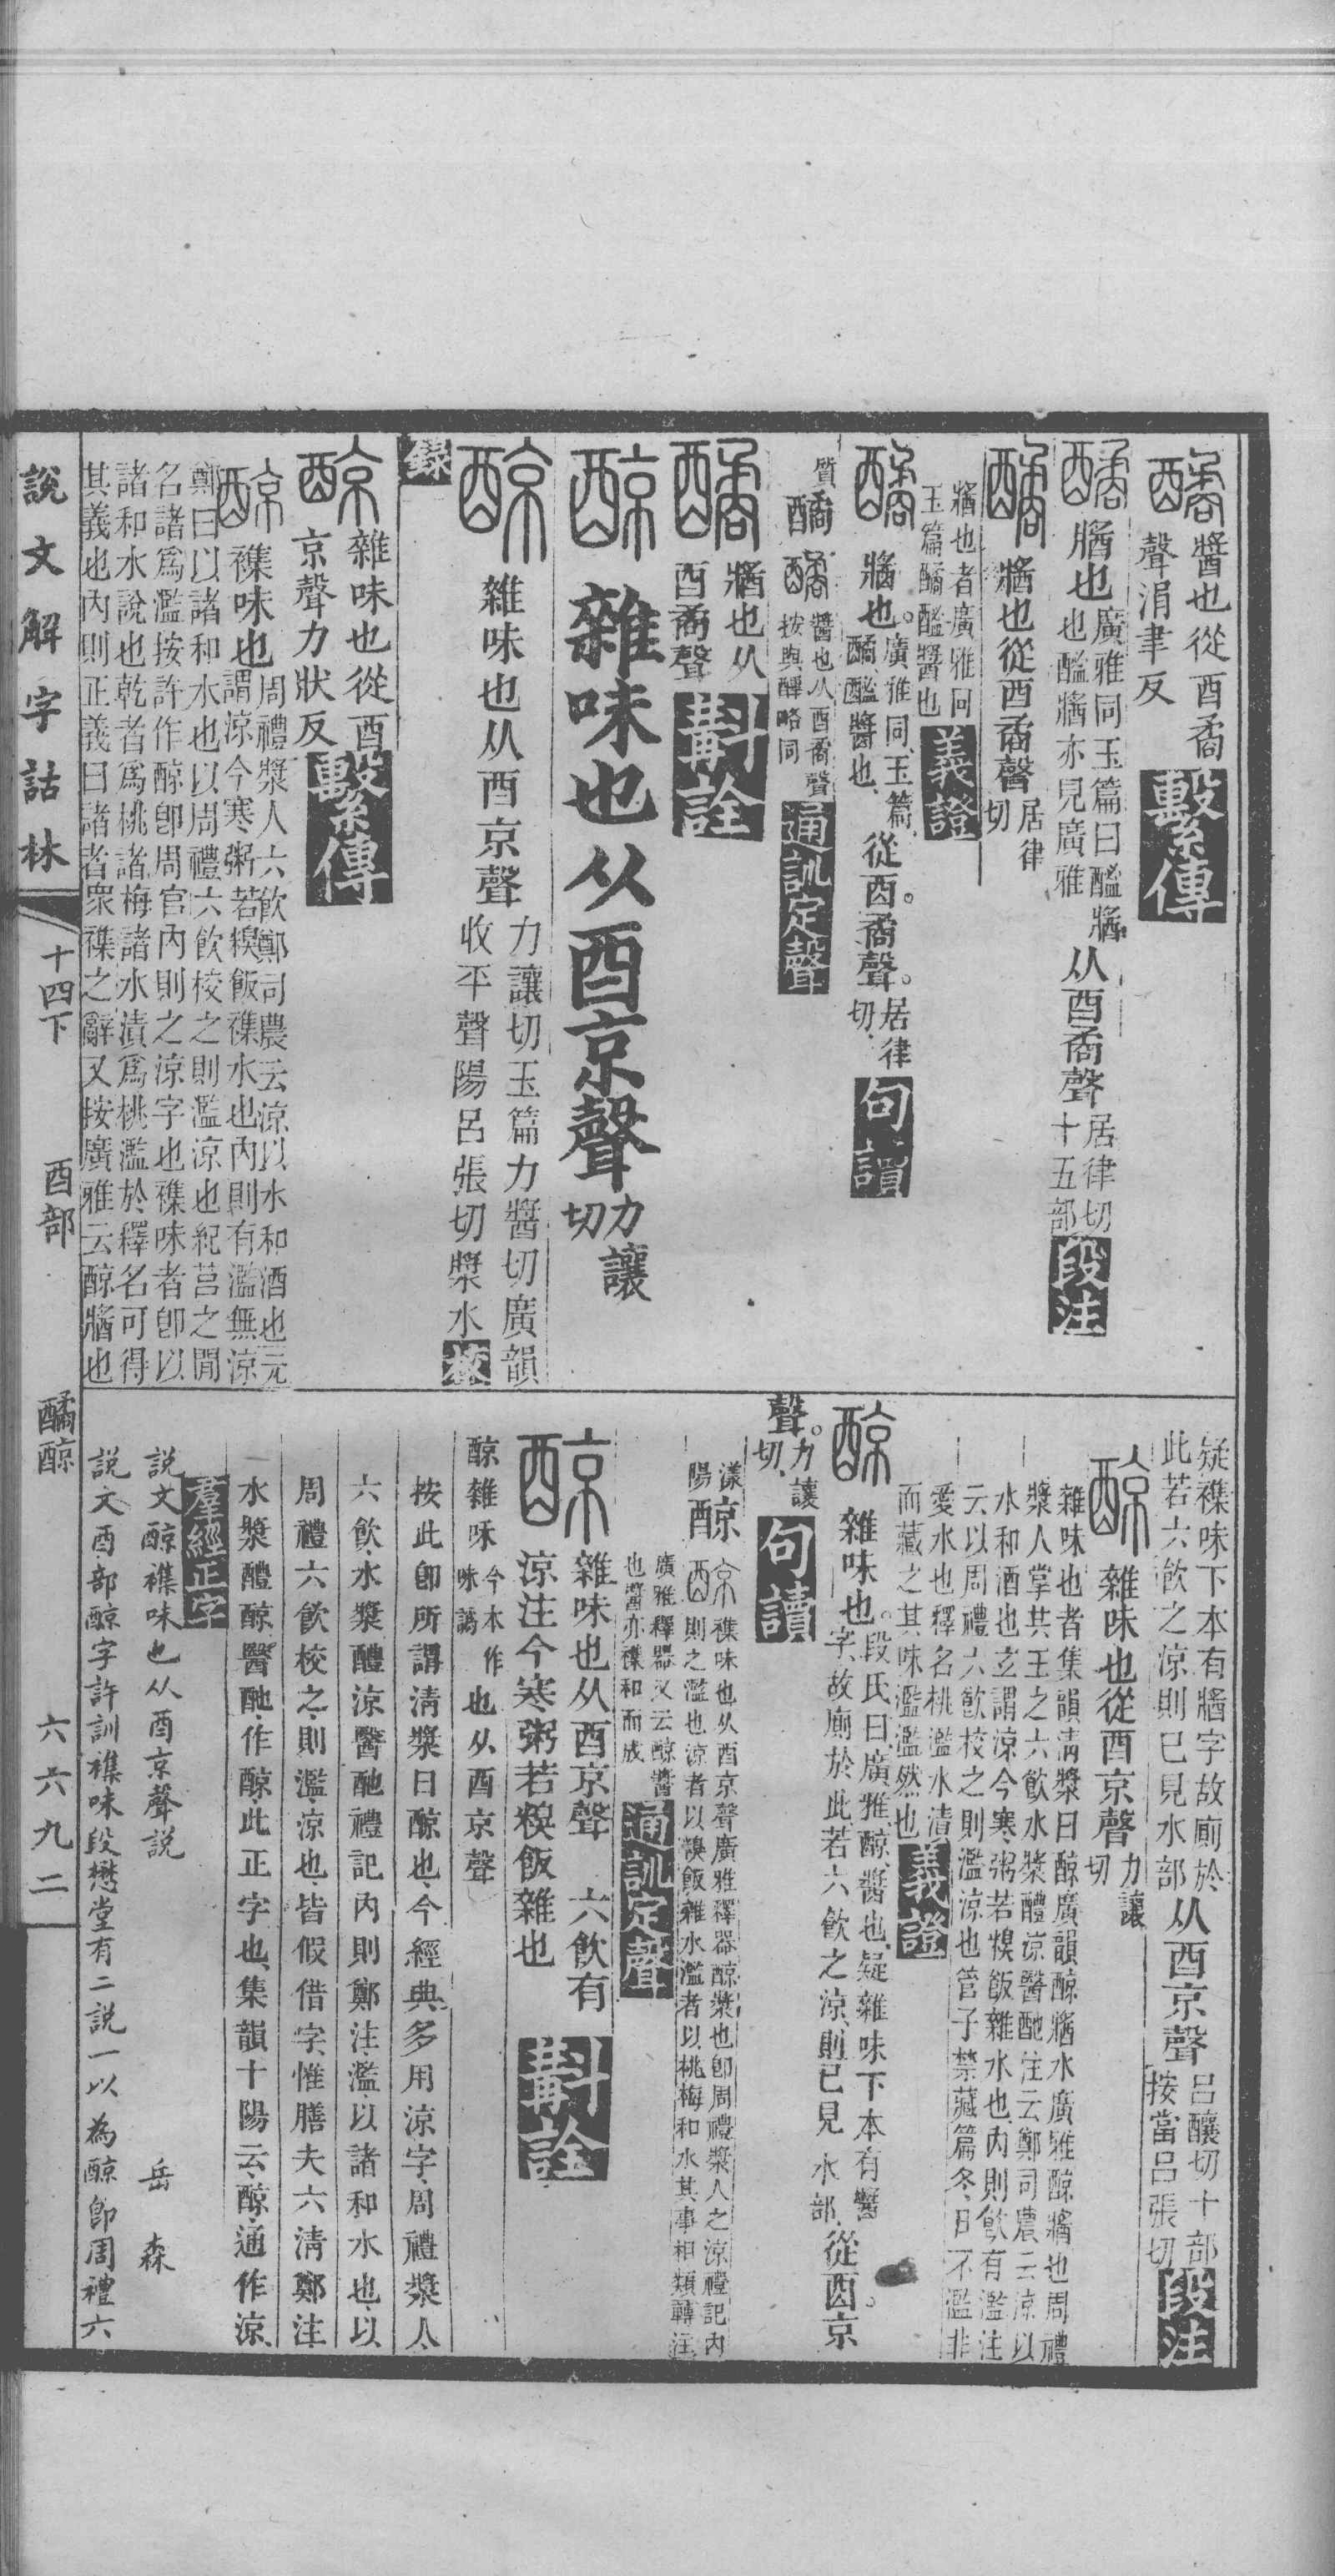 醬也從酉矞
聲涓聿反
繫傳
䤎牆也廣雅同玉篇曰醯牆
也醯牆亦見廣雅
从酉矞聲居律切
十五部
段注
牆也從酉矞聲居律
切
牆也者廣雅同
玉篇䤎醯醬也
義證
牆也。廣雅同、玉篇、
䤎、醯醬也、
從酉。矞聲。居律
切、
句讀
質䤎醬也从酉矞聲
按與醳略同
通訓定聲
牆也从
酉矞聲
斠詮
醇雜味也从酉京聲力讓
切
雜味也从酉京聲力讓切玉篇力醬切廣韻
收平聲陽呂張切漿水
校
錄
雜味也從酉
京聲力狀反
繫傳
䣼襍味也周禮漿人六飲鄭司農云涼以水和酒也元
謂涼今寒粥若糗飯襍水也內則有濫無涼
鄭曰以諸和水也以周禮六飲校之則濫涼也紀莒之閒
名諸爲濫按許作䣼卽周官內則之涼字也襍味者卽以
諸和水說也乾者爲桃諸梅諸水漬爲桃濫於釋名可得
其義也內則正義曰諸者衆襍之辭又按廣雅云䣼牆也
疑襍味下本有牆字故廁於
此若六飲之涼則已見水部
从酉京聲呂釀切十部
按當呂張切
段注
雜味也從酉京聲力讓
切
雜味也者集韻淸漿曰䣼廣韻䣼牆水廣雅䣼牆也周禮
漿人掌共王之六飲水漿醴涼醫酏注云鄭司農云涼以
水和酒也玄謂涼今寒粥若糗飯雜水也內則飲有濫注
云以周禮六飲校之則濫涼也管子禁藏篇冬日不濫非
愛水也釋名桃濫水漬
而藏之其味濫濫然也
義證
雜味也。段氏曰、廣雅、䣼、醬也、疑雜味下本有醬
字、故廁於此、若六飲之涼、則已見水部、
從酉。京
聲。力讓
切、
句讀
漾䣼襍味也从酉京聲廣雅釋器䣼漿也卽周禮漿人之涼禮記內
陽則之濫也涼者以糗飯雜水濫者以桃梅和水其事相類轉注
廣雅釋器又云䣼醬
也醬亦襍和而成
通訓定聲
雜味也从酉京聲 六飲有
涼注今寒粥若糗飯雜也
斠詮
䣼雜味今本作
味譌也从酉京聲
按此卽所謂淸漿曰䣼也、今經典多用涼字、周禮漿人、
六飲水漿醴涼醫酏禮記內則鄭注、濫、以諸和水也、以
周禮六飲校之、則濫、涼也、皆假借字、惟膳夫六淸鄭注
水漿醴䣼醫酏、作䣼、此正字也、集韻十陽云、䣼、通作涼、
羣經正字
說文䣼襍味也从酉京聲說 岳森
說文酉部䣼字許訓襍味段懋堂有二說一以為䣼卽周禮六
說文解字詁林
十四下
酉部
䤎䣼
六六九二